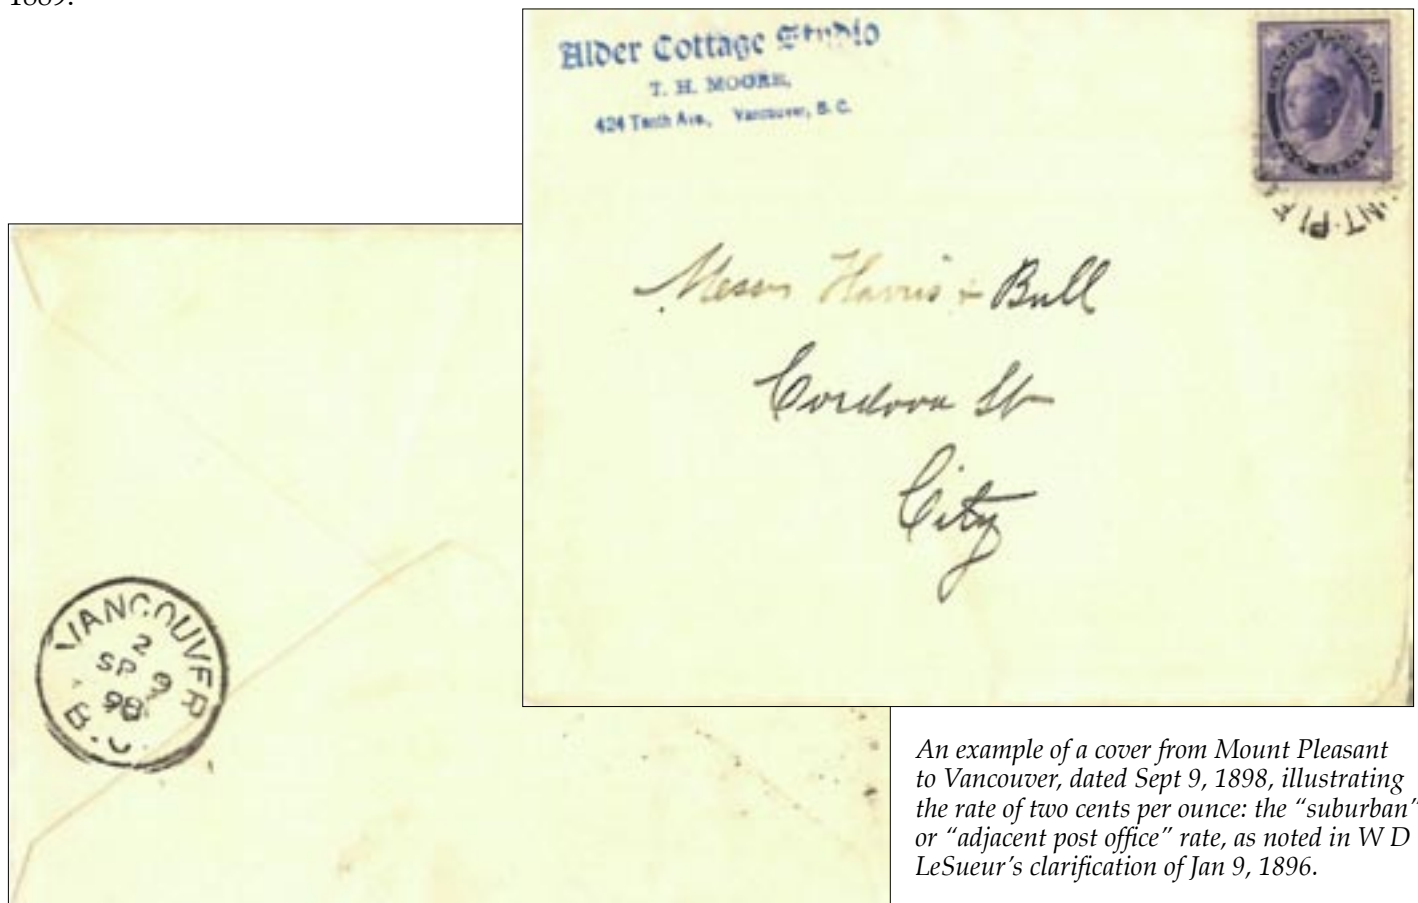 1889.
Alder Cottage Studio
T. H. MOORE,
424 Tenth Ave., Vancouver, B. C.
CANADA POSTAGE
UNT-PLEA
Messrs Harris & Bull
Cordova St
City
VANCOUVER
2
SP 9
98
B.C.
An example of a cover from Mount Pleasant
to Vancouver, dated Sept 9, 1898, illustrating
the rate of two cents per ounce: the “suburban”
or “adjacent post office” rate, as noted in W D
LeSueur’s clarification of Jan 9, 1896.